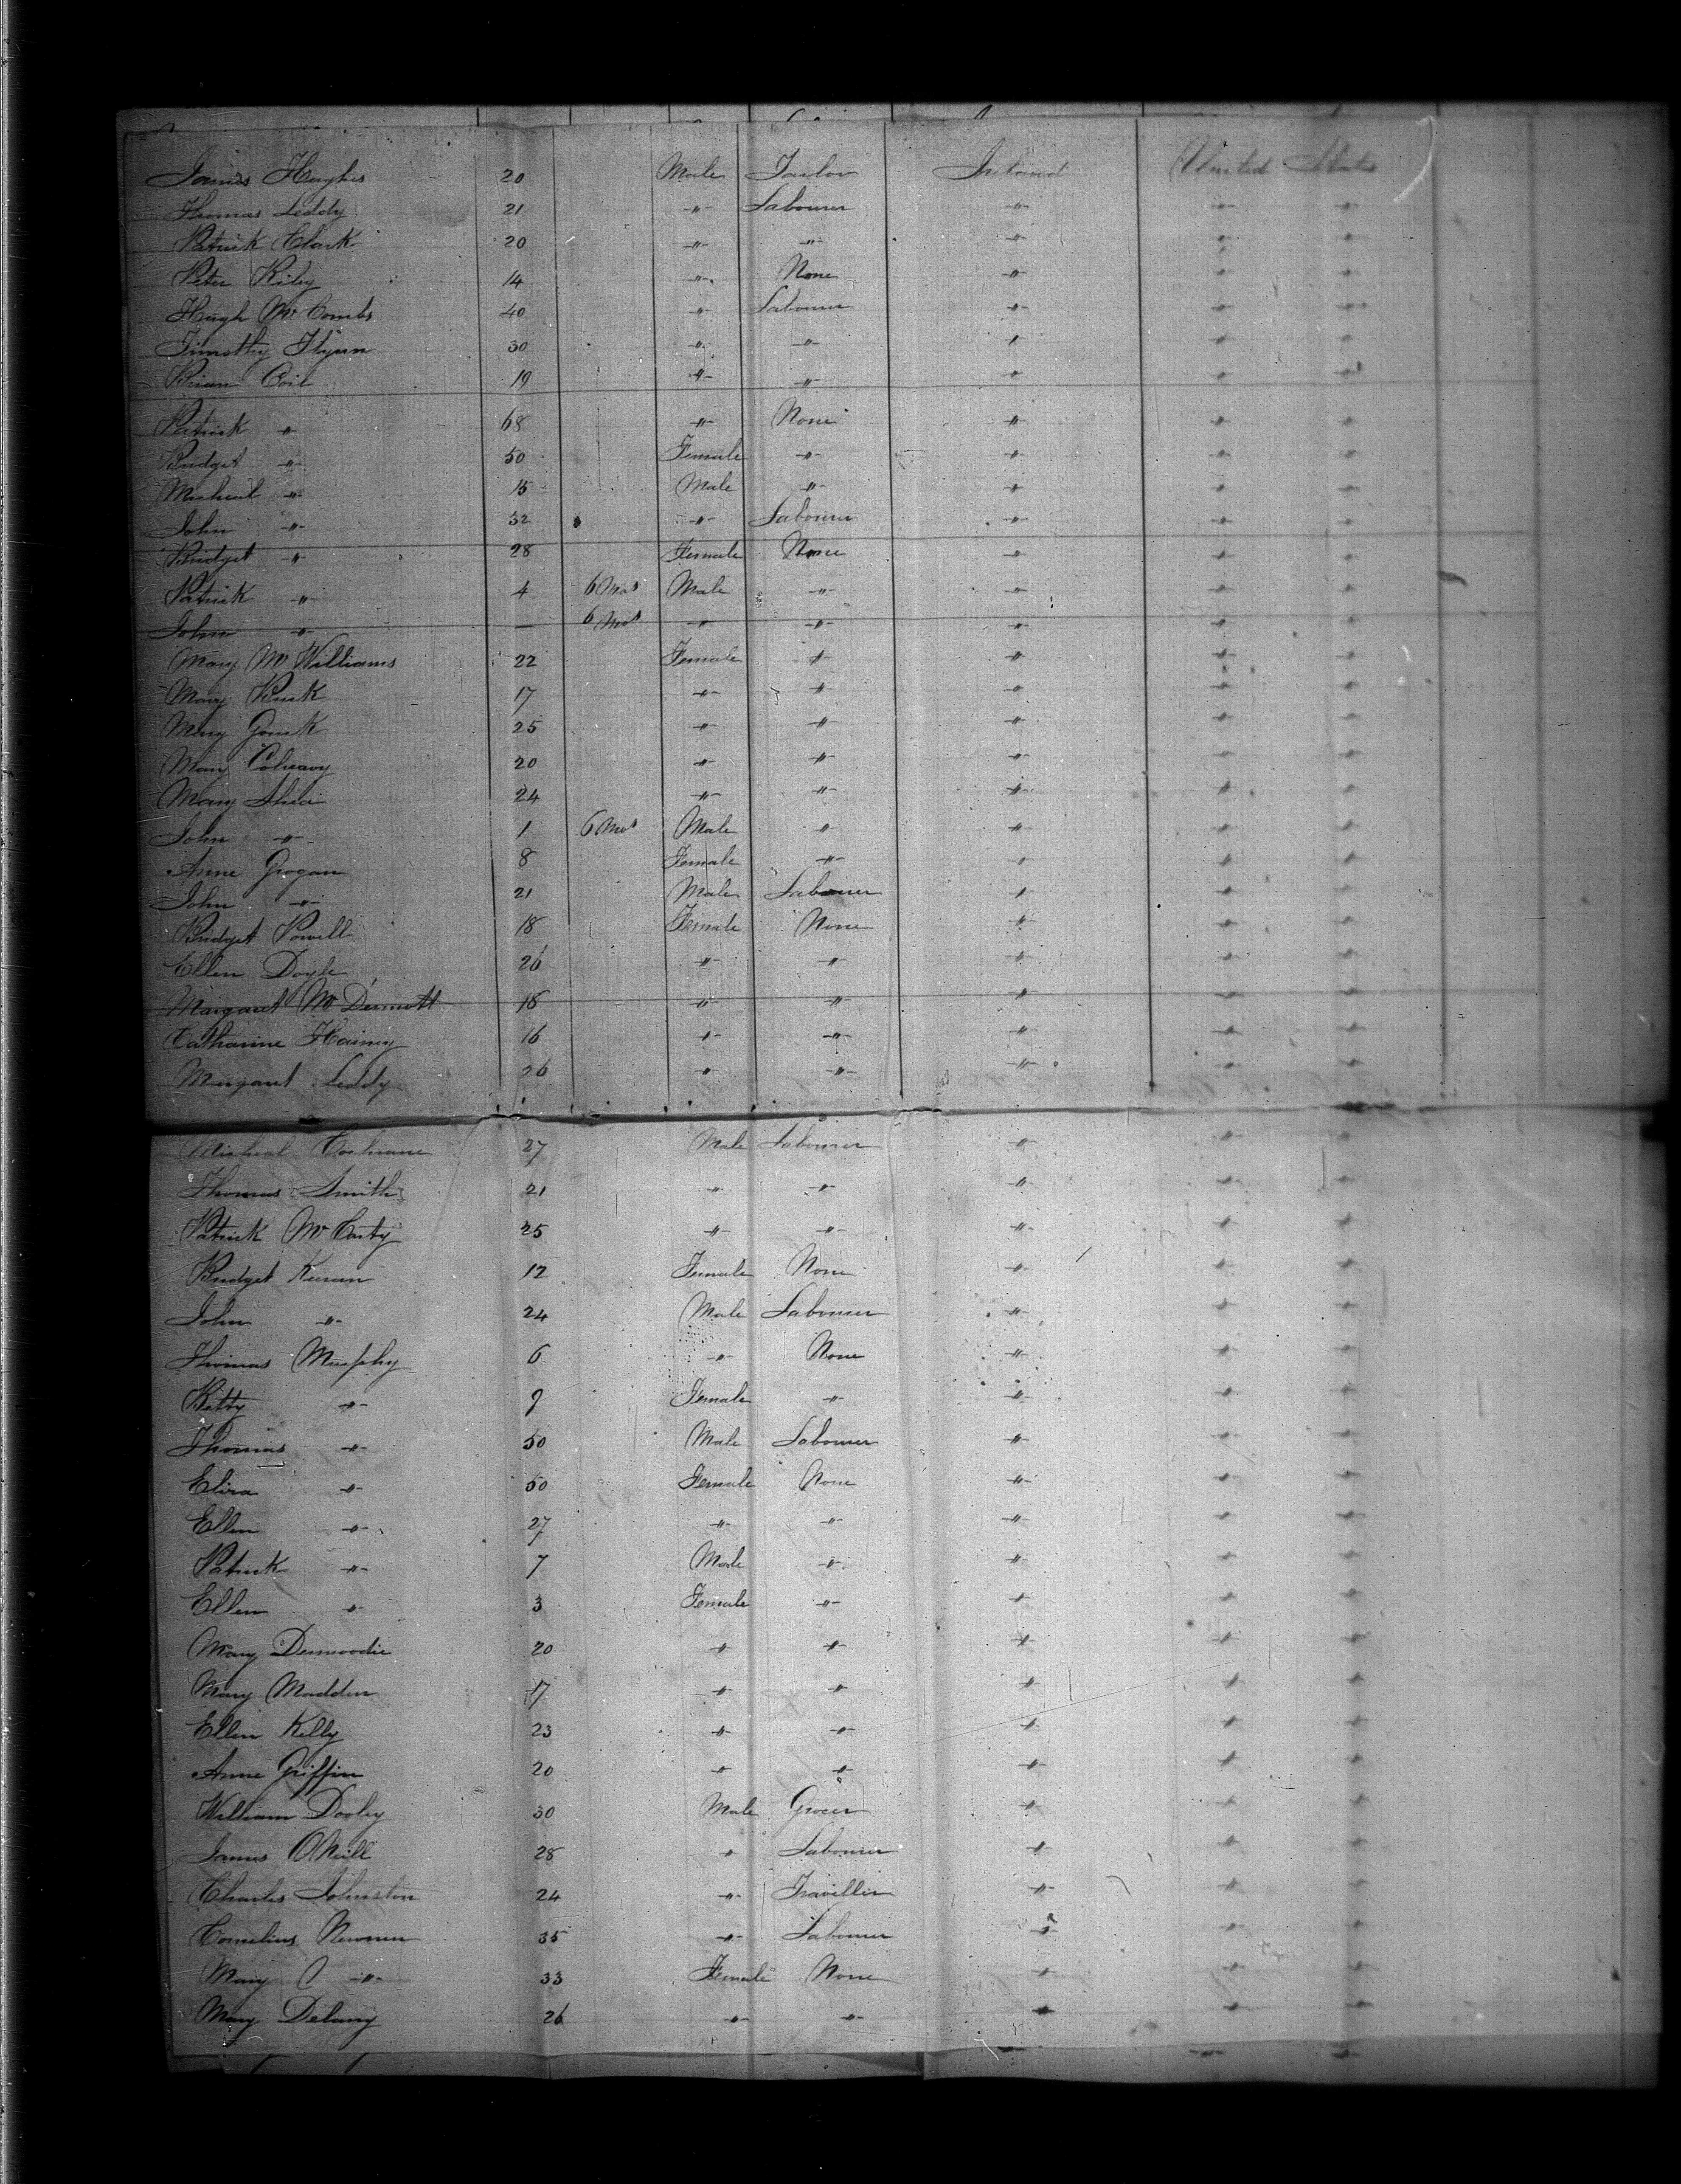 James Hughes 20 Male Tailor Ireland United States
Thomas Leddy 21 -"- Labourer -"- -"- -"-
Patrick Clark 20 -"- -"- -"- -"- -"-
Peter Riley 14 -"- None -"- -"- -"-
Hugh McCombs 40 -"- Labourer -"- -"- -"-
Timothy Flynn 30 -"- -"- -"- -"- -"-
Brian Coil 19 -"- -"- -"- -"- -"-
Patrick -"- 68 -"- None -"- -"- -"-
Bridget -"- 50 Female -"- -"- -"- -"-
Micheal -"- 15 Male -"- -"- -"- -"-
John -"- 32 -"- Labourer -"- -"- -"-
Bridget -"- 28 Female None -"- -"- -"-
Patrick -"- 4 6 Mos Male -"- -"- -"- -"-
John -"- — 6 Mos -"- -"- -"- -"- -"-
Mary McWilliams 22 Female -"- -"- -"- -"-
Mary 17 -"- -"- -"- -"- -"-
Mary 25 -"- -"- -"- -"- -"-
Mary 20 -"- -"- -"- -"- -"-
Mary Shea 24 -"- -"- -"- -"- -"-
John -"- 1 6 Mos Male -"- -"- -"- -"-
Anne Grogan 8 Female -"- -"- -"- -"-
John -"- 21 Male Labourer -"- -"- -"-
Bridget Powell 18 Female None -"- -"- -"-
Ellen Doyle 26 -"- -"- -"- -"- -"-
Margaret McDermott 18 -"- -"- -"- -"- -"-
Catharine Hainey 16 -"- -"- -"- -"- -"-
Margaret Leddy 26 -"- -"- -"- -"- -"-
Micheal Cochrane 27 Male Labourer -"- -"- -"-
Thomas Smith 21 -"- -"- -"- -"- -"-
Patrick McCarty 25 -"- -"- -"- -"- -"-
Bridget Kieran 12 Female None -"- -"- -"-
John -"- 24 Male Labourer -"- -"- -"-
Thomas Murphy 6 -"- None -"- -"- -"-
Kitty -"- 9 Female -"- -"- -"- -"-
Thomas -"- 50 Male Labourer -"- -"- -"-
Eliza -"- 50 Female None -"- -"- -"-
Ellen -"- 27 -"- -"- -"- -"- -"-
Patrick -"- 7 Male -"- -"- -"- -"-
Ellen -"- 3 Female -"- -"- -"- -"-
Mary Dermoodie 20 -"- -"- -"- -"- -"-
Mary Madden 17 -"- -"- -"- -"- -"-
Ellen Kelly 23 -"- -"- -"- -"- -"-
Anne Griffin 20 -"- -"- -"- -"- -"-
William Dooley 30 Male Grocer -"- -"- -"-
James O'Neill 28 -"- Labourer -"- -"- -"-
Charles Johnston 24 -"- Traviller -"- -"- -"-
Cornelius 35 -"- Labourer -"- -"- -"-
Mary -"- 33 Female None -"- -"- -"-
Mary Delany 26 -"- -"- -"- -"- -"-